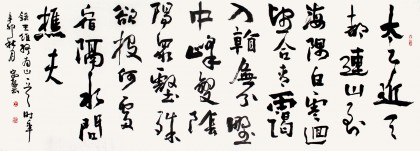 太乙近天
都連山到
海隅白雲迴
望合青靄
入看無分野
中峰變陰
晴眾壑殊
欲投何處
宿隔水問
樵夫
辛卯秋月